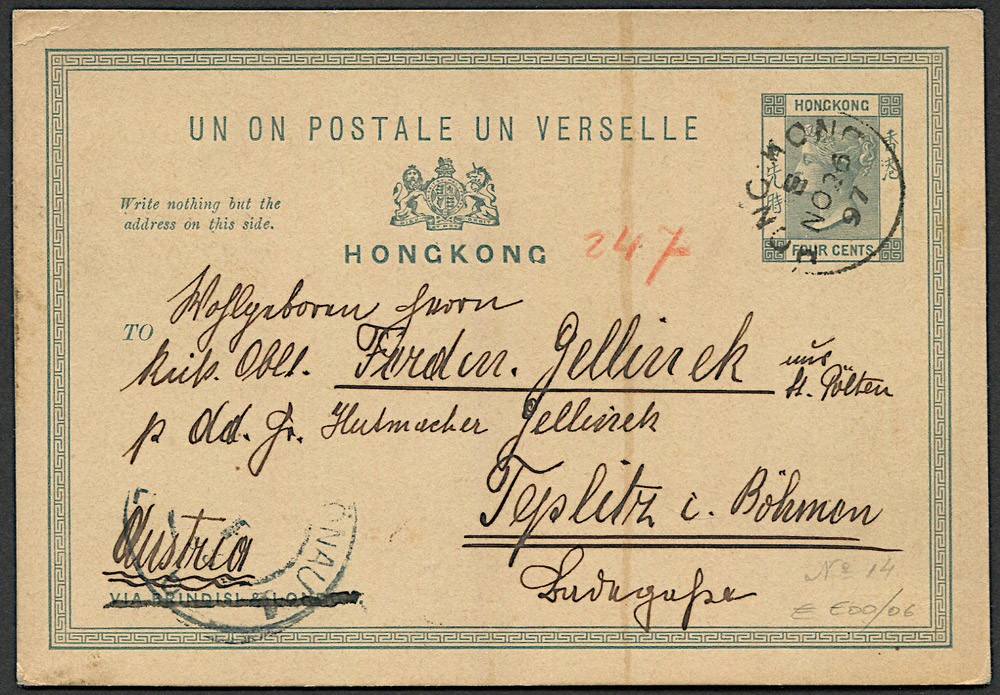 UN ON POSTALE UN VERSELLE
HONGKONG
香港
先時
FOUR CENTS
HONG KONG
B
NO 26
97
Write nothing but the
address on this side.
HONGKONG
247
TO
Wohlgeboren Herrn
Ferdin. Gellinek aus
St. Pölten
p Hr. Hutmacher Gellinek
Teplitz i. Böhmen
Austria
VIA BRINDISI & LONDON.
Badegaße
Nº 14
E E00/06